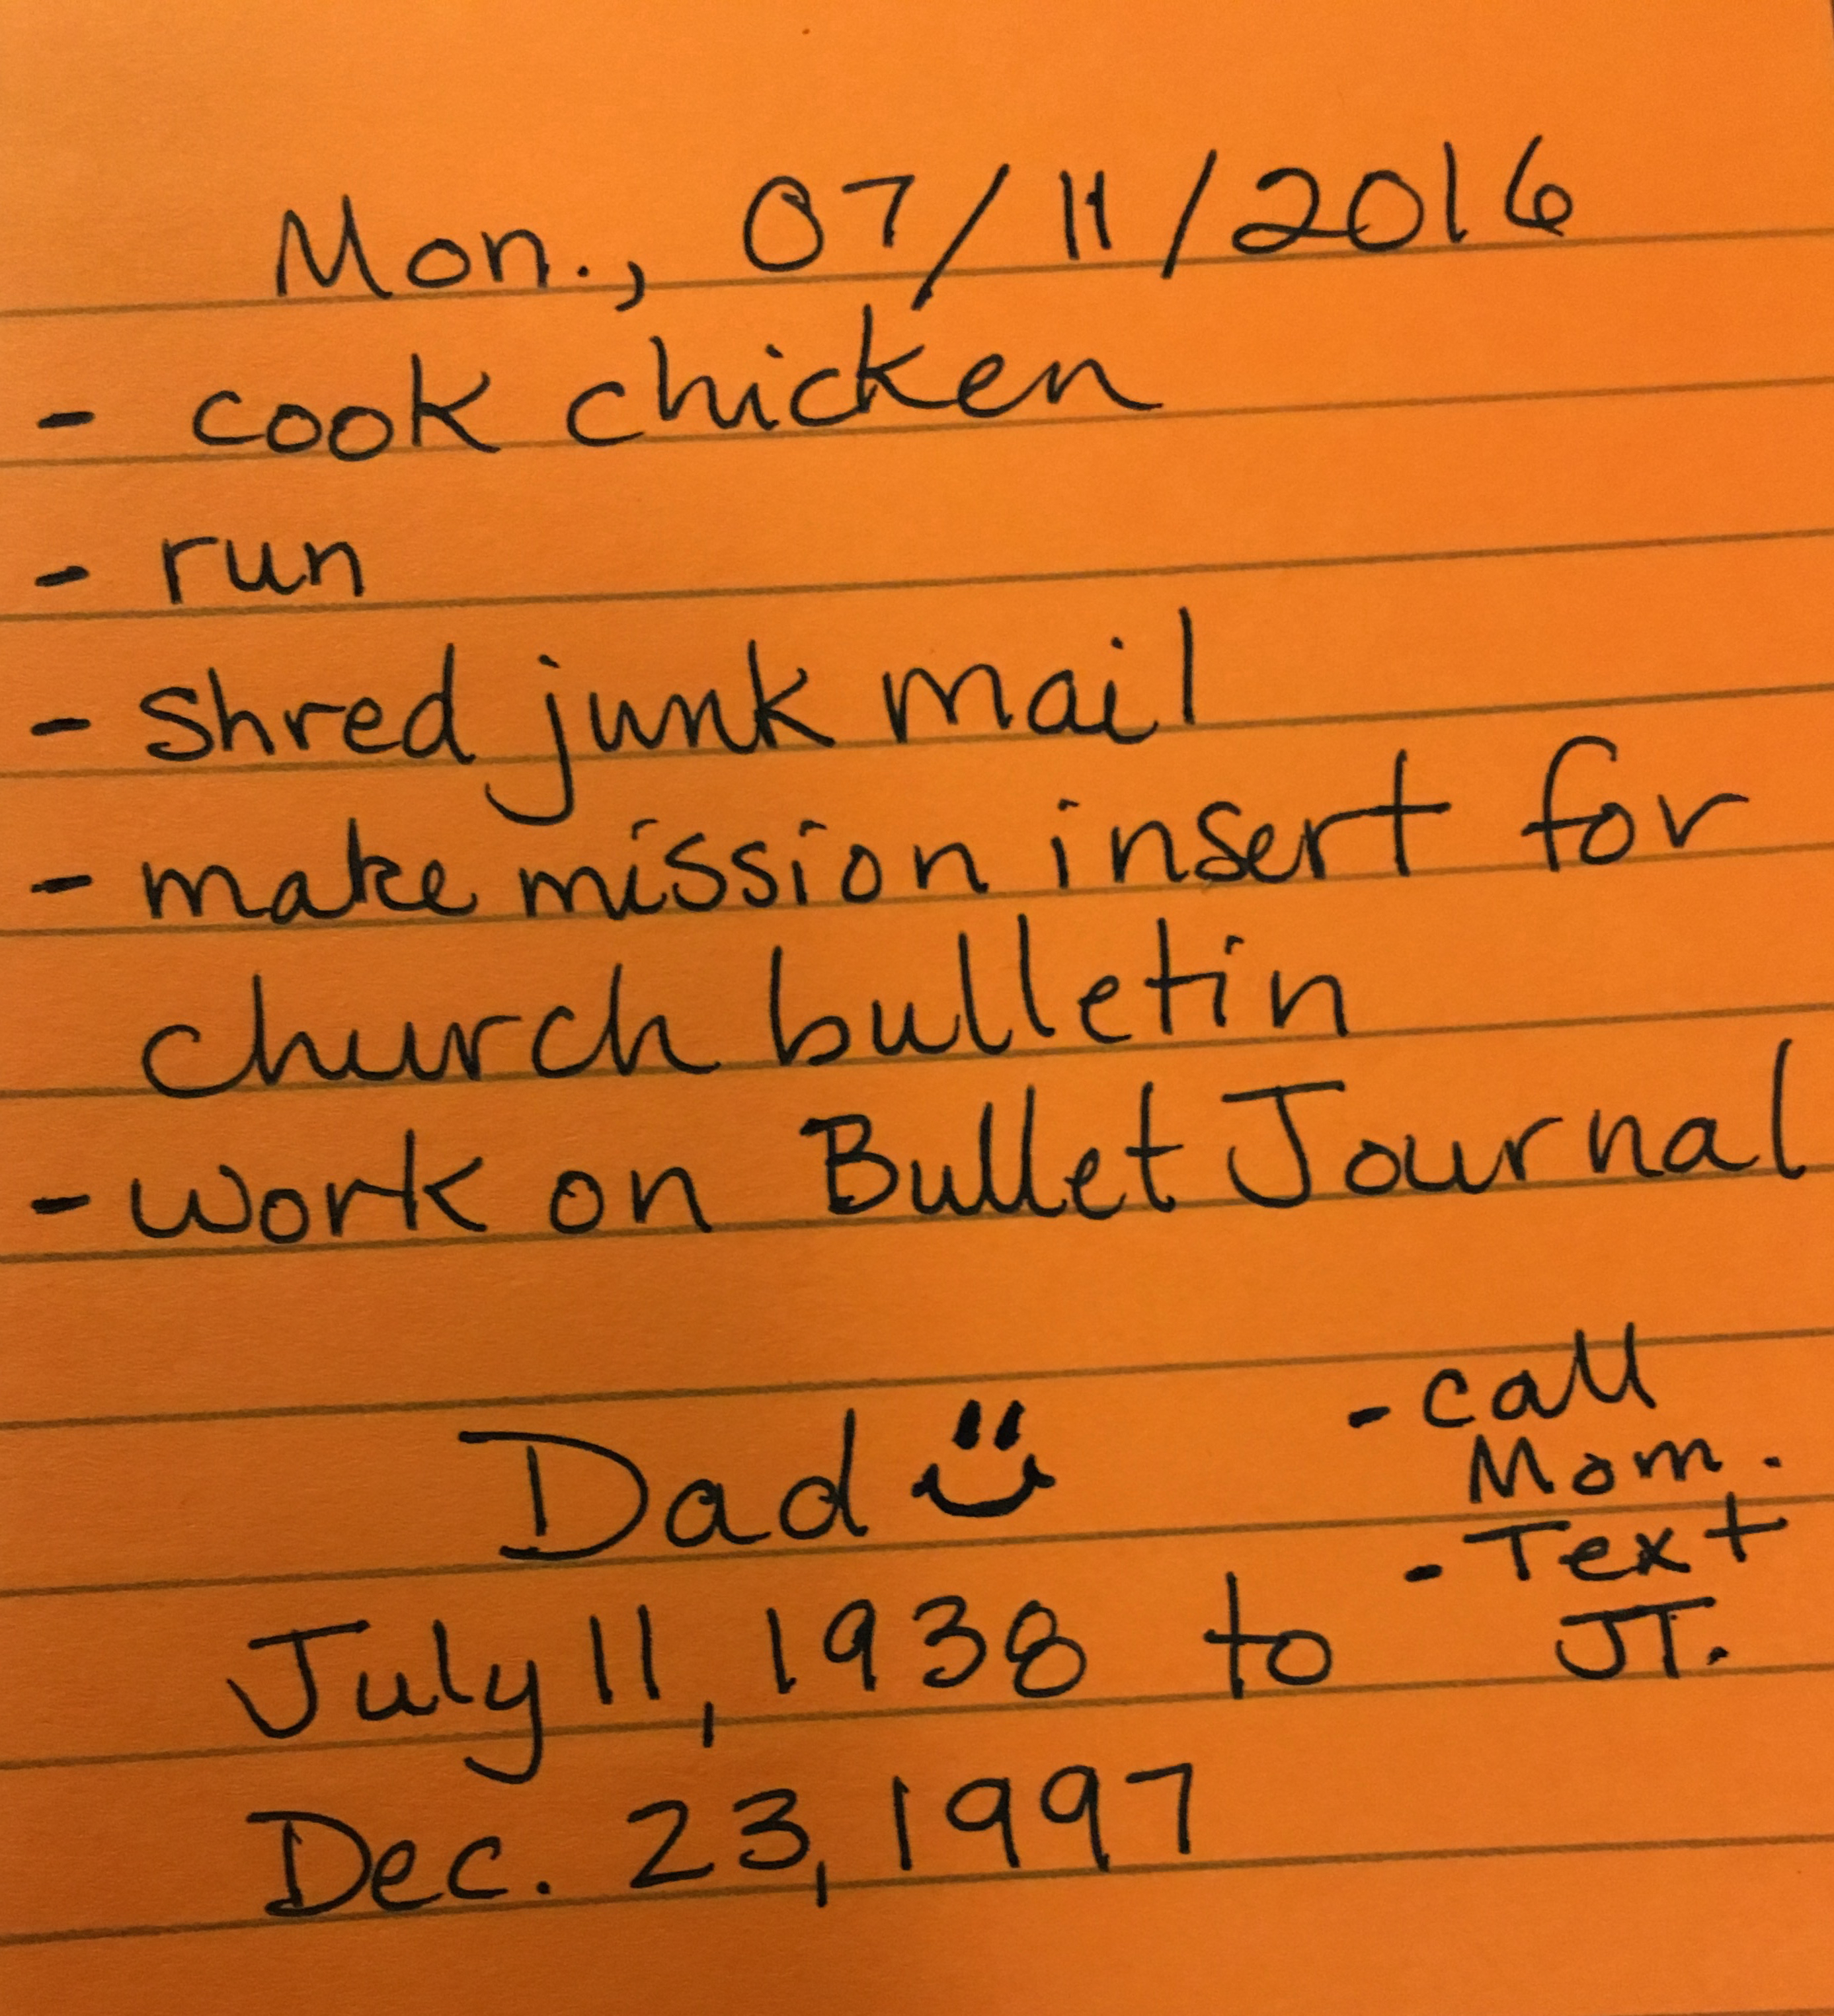 Mon., 07/11/2016
- cook chicken
- run
- shred junk mail
- make mission insert for
church bulletin
- work on Bullet Journal
- call
Mom.
- Text
JT.
Dad
July 11, 1938 to
Dec. 23, 1997